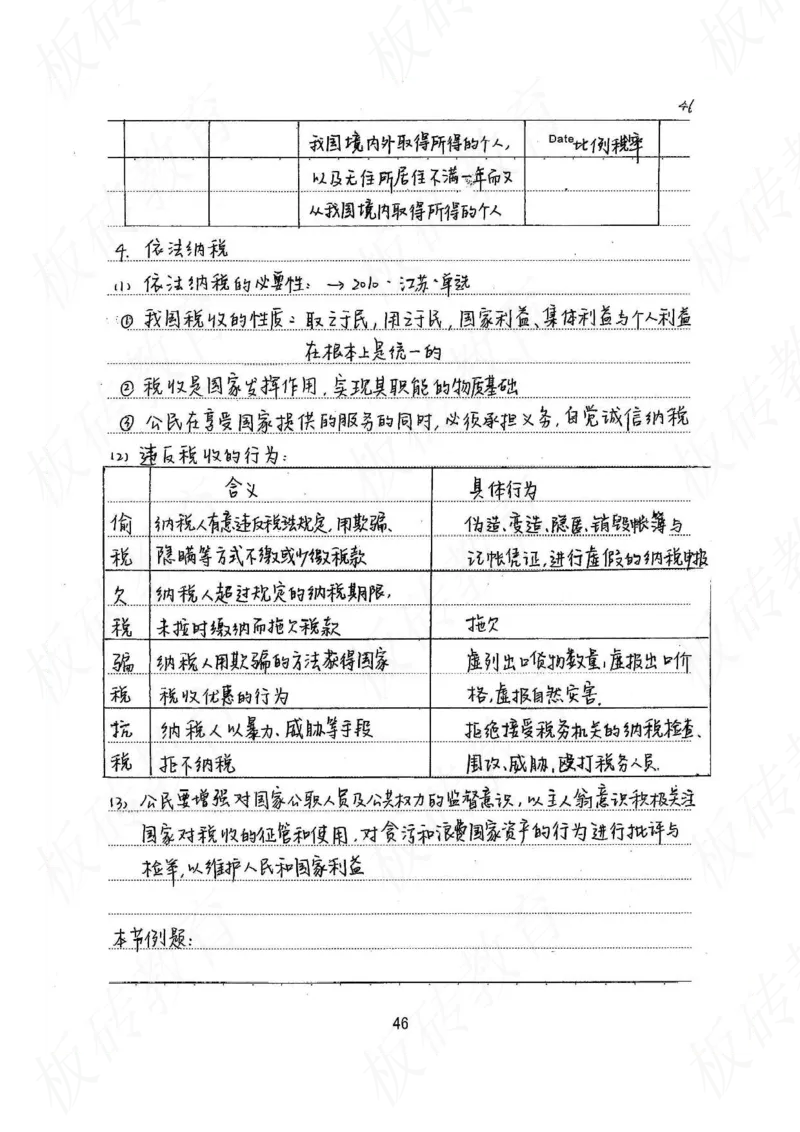 46
我国境内外取得所得的个人, Date 比例税率
以及无住所居住不满一年而又
从我国境内取得所得的个人
4. 依法纳税
(1) 依法纳税的必要性: → 2010·江苏·单选
① 我国税收的性质: 取之于民, 用之于民, 国家利益、集体利益与个人利益
在根本上是统一的
② 税收是国家发挥作用, 实现其职能的物质基础
③ 公民在享受国家提供的服务的同时, 必须承担义务, 自觉诚信纳税
(2) 违反税收的行为:
含义 具体行为
偷 纳税人有意违反税法规定, 用欺骗、 伪造、变造、隐匿、销毁帐簿与
税 隐瞒等方式不缴或少缴税款 记帐凭证, 进行虚假的纳税申报
欠 纳税人超过规定的纳税期限,
税 未按时缴纳而拖欠税款 拖欠
骗 纳税人用欺骗的方法获得国家 虚列出口货物数量, 虚报出口价
税 税收优惠的行为 格, 虚报自然灾害.
抗 纳税人以暴力、威胁等手段 拒绝接受税务机关的纳税检查、
税 拒不纳税 围攻、威胁, 殴打税务人员.
(3) 公民要增强对国家公职人员及公共权力的监督意识, 以主人翁意识积极关注
国家对税收的征管和使用, 对贪污和浪费国家资产的行为进行批评与
检举, 以维护人民和国家利益
本节例题:
46
板砖教育